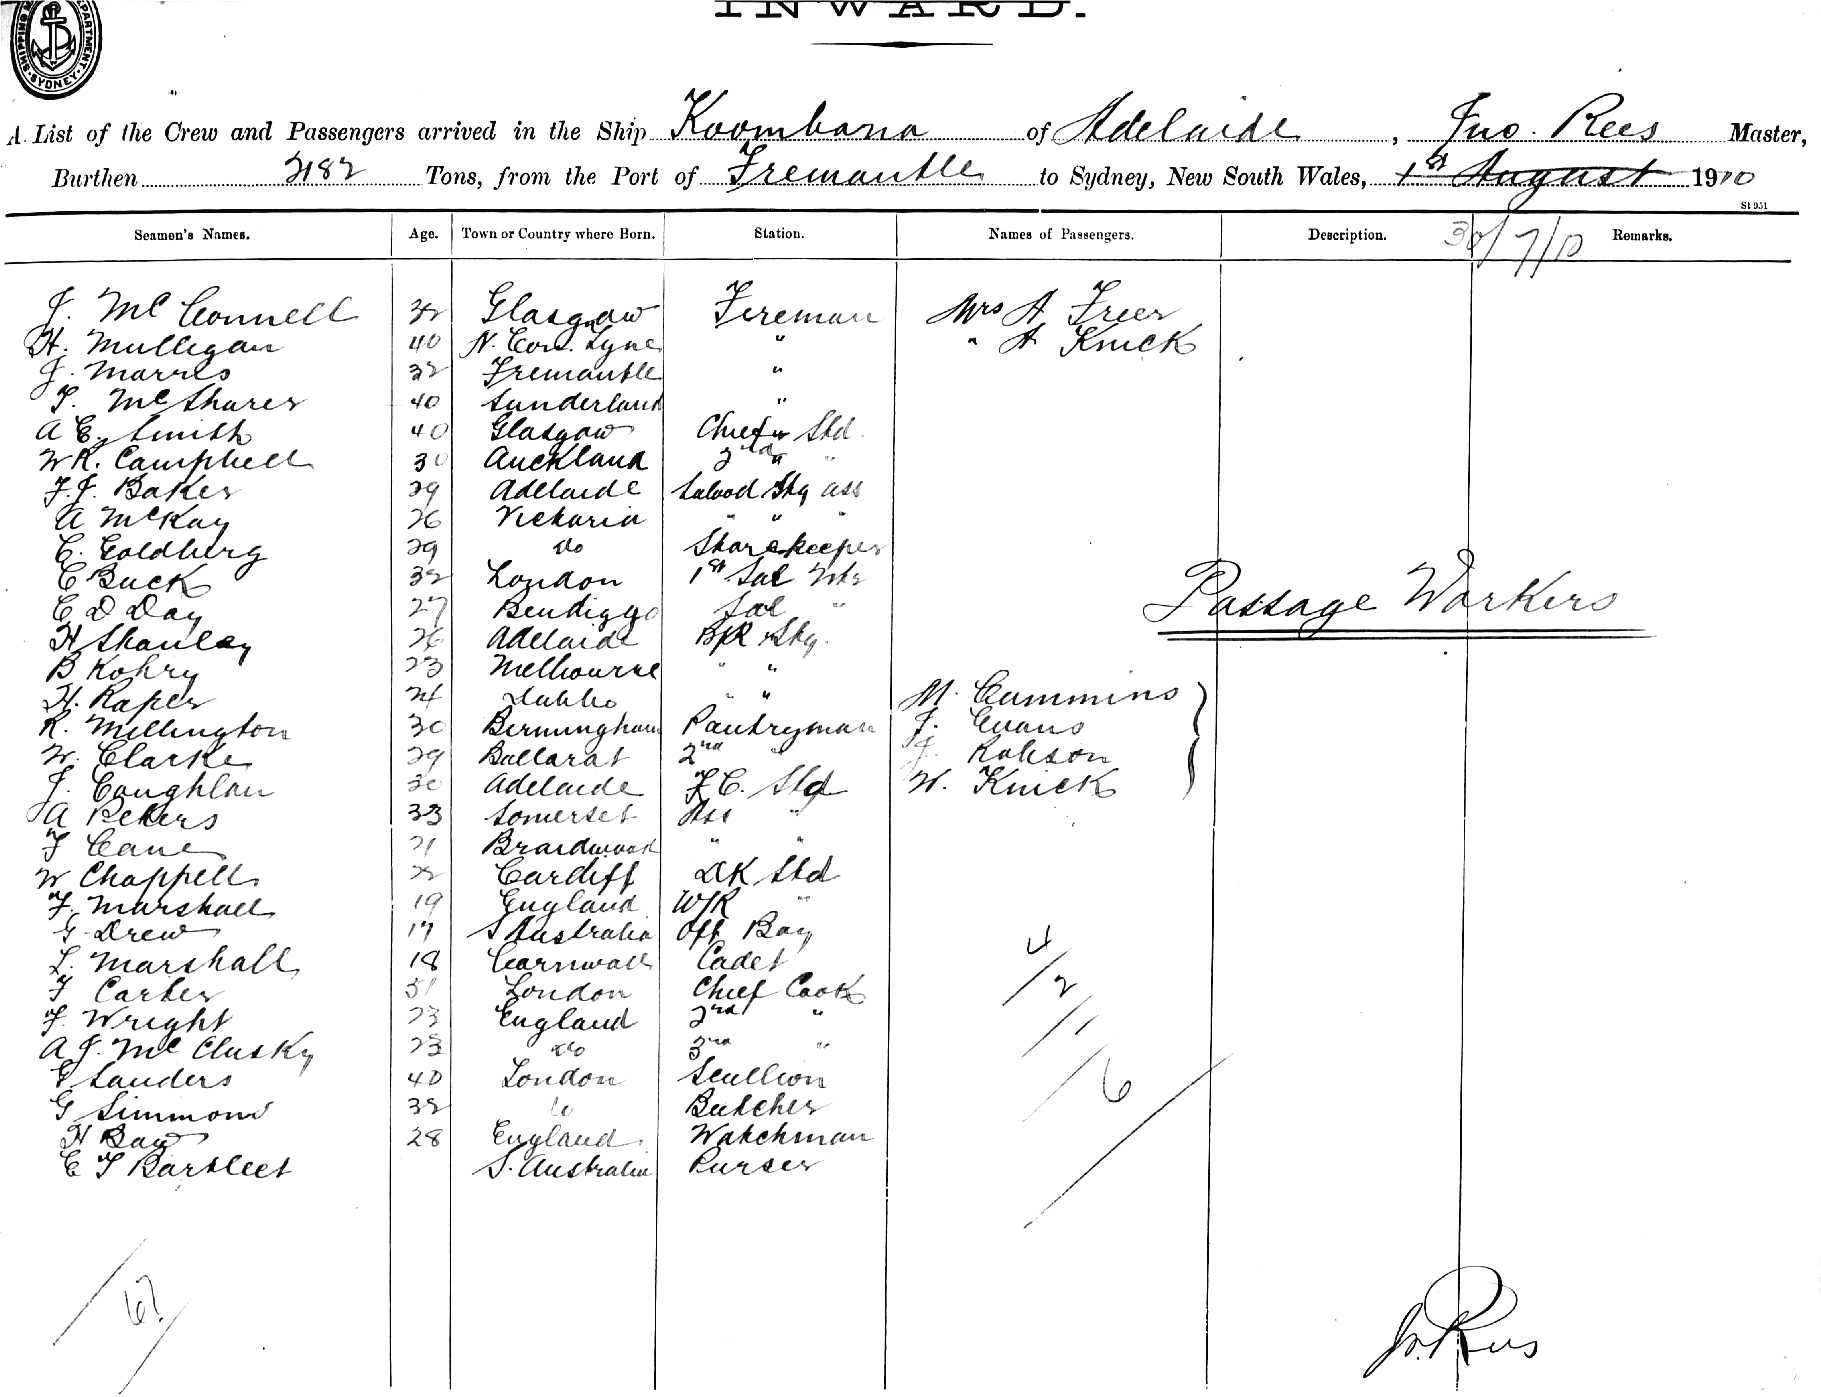 INWARD.
SHIPPING M DEPARTMENT. SYDNEY
A List of the Crew and Passengers arrived in the Ship Koombana of Adelaide, Jno. Rees Master,
Burthen 2182 Tons, from the Port of Fremantle to Sydney, New South Wales, 1st August 1910
St 951
30/7/10
Seamen's Names. Age. Town or Country where Born. Station. Names of Passengers. Description. Remarks.
J. McConnell 32 Glasgow Fireman Mrs A Freer
H. Mulligan 40 N. Con. Tyne " " A Knick
J. Marris 32 Fremantle "
T. McSharer 40 Sunderland "
A E. Smith 40 Glasgow Chief Std
W R. Campbell 30 Auckland 2nd " "
F. J. Baker 29 Adelaide Salood Stg ass
A McKay 26 Victoria " " "
C. Goldberg 29 do Storekeeper
C Buck 32 London 1st Sal Wtr
C D Day 27 Bendiggo Sal "
H Shanley 26 Adelaide B/R Stg.
B Kohry 23 Melbourne " "
H. Raper 24 Dubbo " " M. Cummins
R. Millington 30 Birmingham Pantryman J. Evans
W. Clarke 29 Ballarat 2nd " J. Robson
J. Coughlan 30 Adelaide F.C. Std W. Knick
A Peters 33 Somerset Ass "
F Cane 21 Braidwood " "
W Chappell 22 Cardiff DK Std
F. Marshall 19 England W/R "
G. Drew 17 S Australia Off Boy
L. Marshall 18 Cornwall Cadet
F Carter 31 London Chief Cook
F. Wright 23 England 2nd "
A J. McClusky 23 do 3rd "
G Sanders 40 London Scullion
G Simmons 32 do Butcher
H Day 28 England Watchman
C T Bartlett S. Australia Purser
Passage Workers
4/2/1/6/
/67/
Jno. Rees